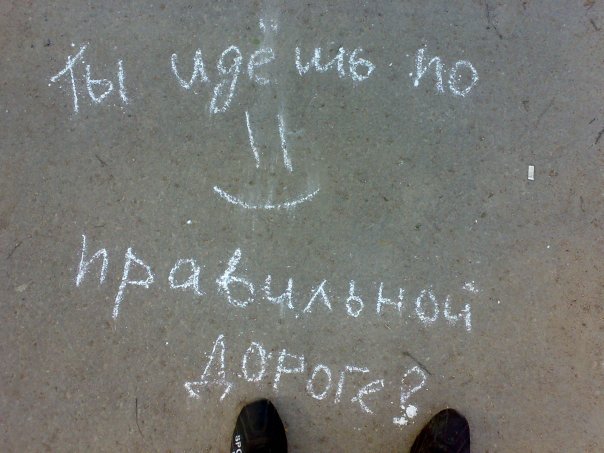 Ты идешь по
правильной
дороге?